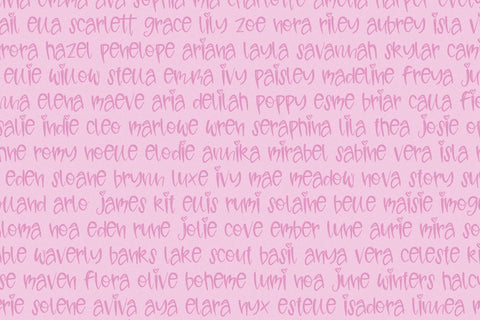 ail ella scarlett grace lily zoe nora riley aubrey isla vi
rora hazel penelope ariana layla savannah skylar cami
ellie willow stella emma ivy paisley madeline freya ju
nna elena maeve aria delilah poppy esme briar calla fio
salie indie cleo marlowe wren seraphina lila thea josie op
nne romy noelle elodie annika mirabel sabine vera isla r
eden sloane brynn luxe ivy mae meadow nova story su
olland arlo james kit ellis rumi solaine belle maisie imoge
aloma noa eden rune jolie cove ember lune aurie mira so
ble waverly banks lake scout basil anya vera celeste ki
se maven flora olive boheme lumi noa june winters halcy
erie solene aviva aya elara nyx estelle isadora linnea m